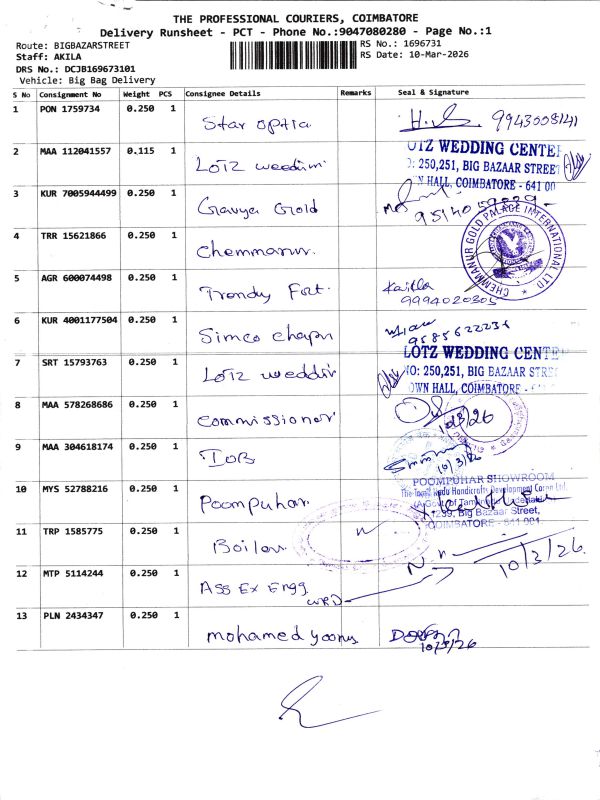 THE PROFESSIONAL COURIERS, COIMBATORE
Delivery Runsheet - PCT - Phone No.:9047080280 - Page No.:1
Route: BIGBAZARSTREET
RS No.: 1696731
Staff: AKILA
RS Date: 10-Mar-2026
DRS No.: DCJB169673101
Vehicle: Big Bag Delivery
S No Consignment No Weight PCS Consignee Details Remarks Seal & Signature
1 PON 1759734 0.250 1 Star optic 9943008141
2 MAA 112041557 0.115 1 LOTZ
OTZ WEDDING CENTE
: 250,251, BIG BAZAAR STREET
N HALL, COIMBATORE - 641 00
3 KUR 7005944499 0.250 1 Gold
4 TRR 15621866 0.250 1 Chemmanur
CHEMMANUR GOLD PALACE INTERNATIONAL LTD.
5 AGR 600074498 0.250 1 Trendy
9994020305
6 KUR 4001177504 0.250 1 Simco
7 SRT 15793763 0.250 1 LOTZ
LOTZ WEDDING CENTE
NO: 250,251, BIG BAZAAR STREE
OWN HALL, COIMBATORE -
8 MAA 578268686 0.250 1 Commissioner
10/3/26
9 MAA 304618174 0.250 1 IOB
10/3/26
10 MYS 52788216 0.250 1 Poompuhar
POOMPUHAR SHOWROOM
The Tamil Nadu Handicrafts Development Corpn Ltd.
(A Govt of Tamilnadu
1239, Big Bazaar Street,
COIMBATORE - 641 001
11 TRP 1585775 0.250 1
10/3/26
12 MTP 5114244 0.250 1 Ass Ex Engg
WRD
13 PLN 2434347 0.250 1 mohamed yoonus
10/3/26